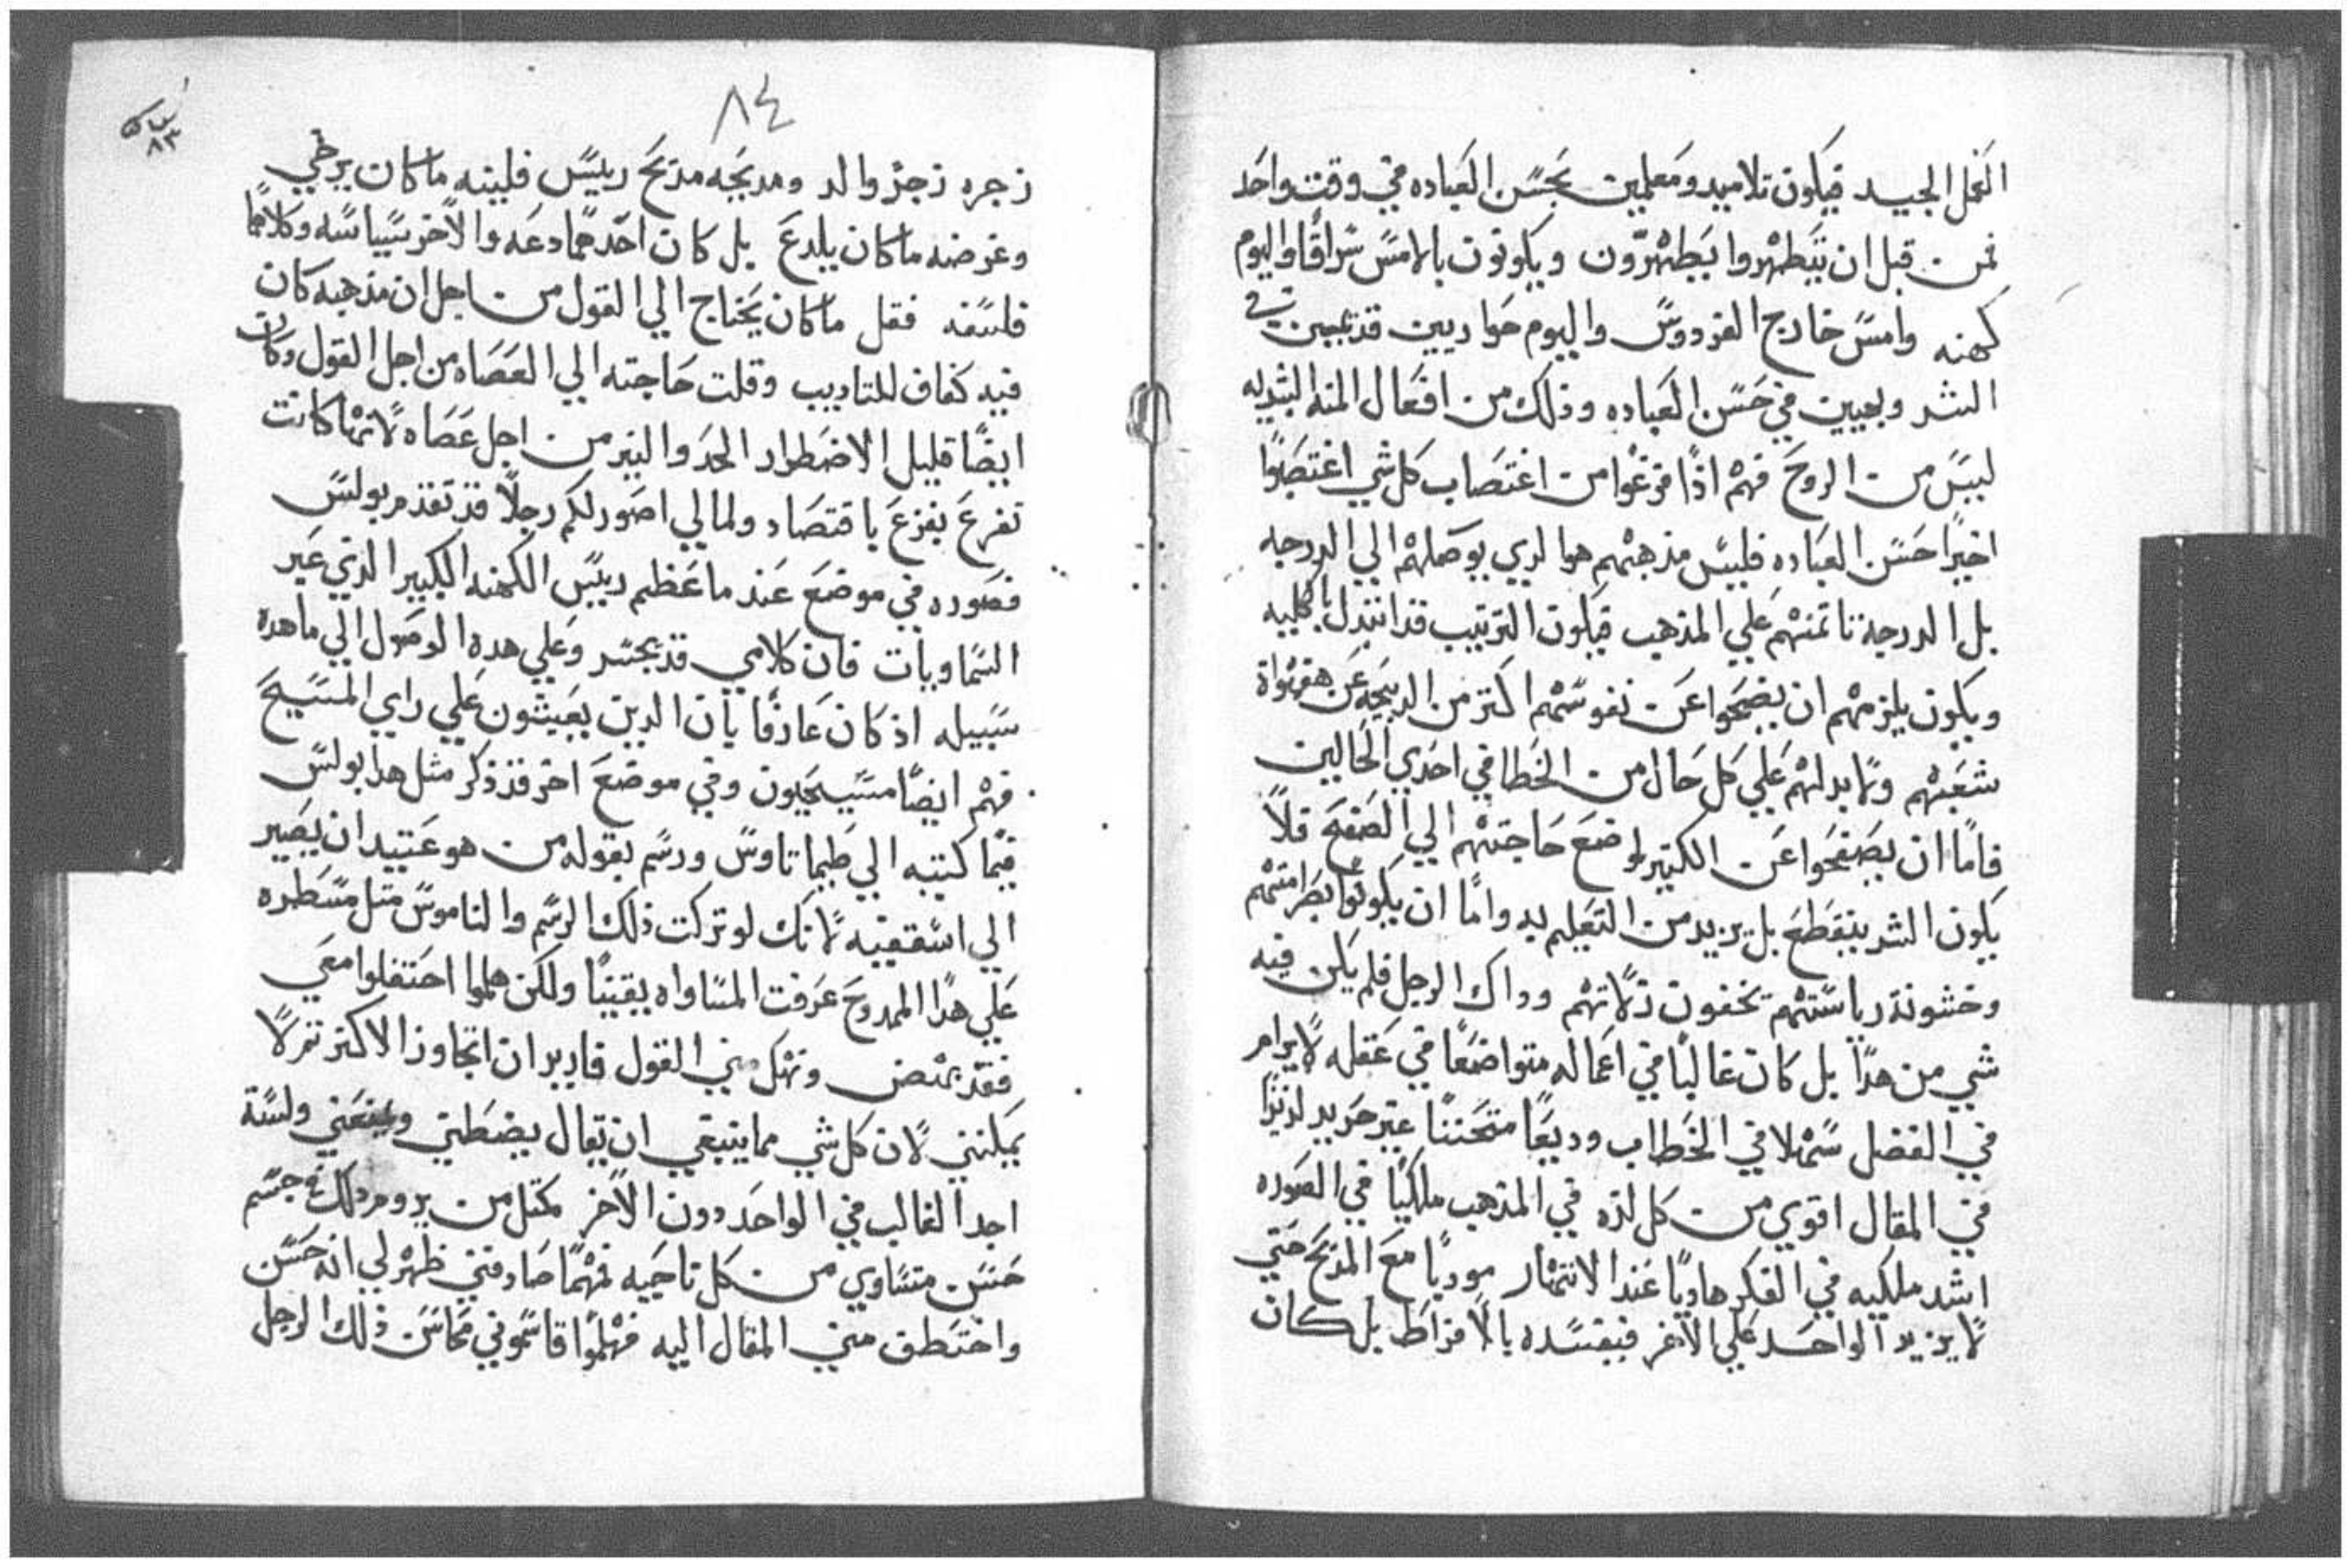 العمل الجيد فيكون تلاميد ومعلمين بحسن العباده في وقت واحد
فمن قبل ان يتطهروا يطهرون ويكونون بالامس سراقا واليوم
كهنه وامس خارج الفردوس واليوم حواريين قد في
الشر وبعيين في حسن العباده وذلك من افعال المنه البشريه
ليس من الروح فهم اذا فرغوا من اغتصاب كل شي اغتصبوا
اخيرا حسن العباده فليس مذهبهم هو الدي يوصلهم الي الدرجه
بل الدرجه تاتمنهم علي المذهب فيكون الترتيب قد انبدل بالكليه
ويكون يلزمهم ان يضحوا عن نفوسهم اكتر من الدبيحه عن هفواة
شعبهم ولا بد لهم علي كل حال من الخطا في احدي الحالين
فاما ان يصفحوا عن الكتير لوضع حاجتهم الي الصفح فلا
يكون الشر ينقطع بل يزيد من التعليم به واما ان يكونوا بصرامتهم
وخشونة رياستهم يخفون زلاتهم وداك الرجل فلم يكن فيه
شي من هدا بل كان عاليا في اعماله متواضعا في عقله لا يرام
في الفضل سهلا في الخطاب وديعا متحننا غير حريد لديدا
في المقال اقوي من كل لده في المذهب ملكيا في الصوره
اشد ملكيه في الفكر هاديا عند الانتهار موديا مع المديح حتي
لا يزيد الواحد علي الاخر فيفسده بالافراط بل كان
٨٤
٨٣
زجره زجر والد ومديحه مديح رييس فلينه ما كان يرخي
وغرضه ما كان يلدع بل كان احدهما دعه والاخر سياسه وكلاهما
فلسفه فقل ما كان يحتاج الي القول من اجل ان مذهبه كان
فيه كفاف للتاديب وقلت حاجته الي العصاه من اجل القول وكان
ايضا قليل الاضطرار الحد والنير من اجل عصاه لانها كانت
تقرع بفزع باقتصاد ولما لي اصور لكم رجلا قد تقدم بولس
فصوره في موضع عند ما عظم رييس الكهنه الكبير الدي عبر
السماويات فان كلامي قد يجسر وعلي هده الوصول الي ما هده
سبيله اذ كان عارفا بان الدين يعيشون علي راي المسيح
فهم ايضا مسيحيون وفي موضع اخر قد ذكر مثل هدا بولس
فيما كتبه الي طيماتاوس ورسم بقوله من هو عتيد ان يصير
الي اسقفيه لانك لو تركت ذلك الرسم والناموس متل مسطره
علي هدا الممدوح عرفت المساواه يقينا ولكن هلموا احتفلوا معي
فقد يمتض وتهتك بي القول فاريد ان اتجاوز الاكتر تم لا
يمكنني لان كل شي مما ينبغي ان يقال يضبطني ويمنعني ولسة
اجد الغالب في الواحد دون الاخر كمتل من يروم دلك في جسم
حسن متساوي من كل ناحيه فمهما صادفني ظهر لي انه حسن
واختطف مني المقال اليه فهلموا قاسموني محاسن ذلك الرجل